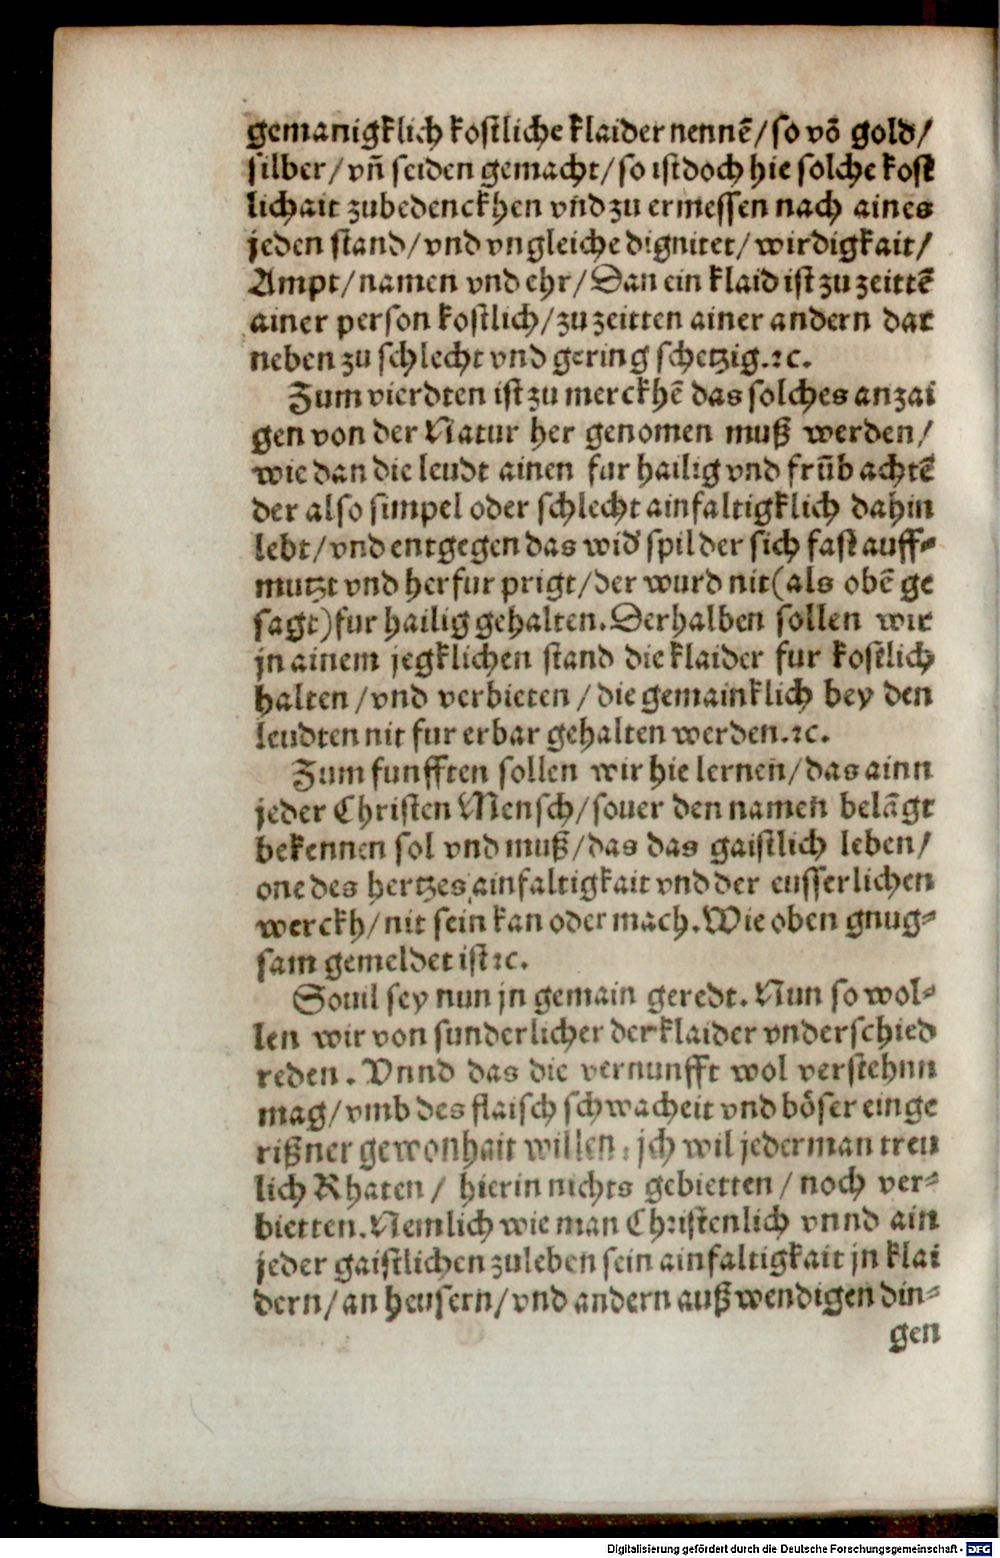 gemanigklich kostliche klaider nennẽ/so võ gold/
silber/vñ seiden gemacht/so ist doch hie solche kost
lichait zubedenckhen vnd zu ermessen nach aines
jeden stand/vnd vngleiche dignitet/wirdigkait/
Ampt/namen vnd ehr/Dan ein klaid ist zu zeittẽ
ainer person kostlich/zu zeitten ainer andern dar
neben zu schlecht vnd gering schetzig.ꝛc.
Zum vierdten ist zu merckhẽ das solches anzai
gen von der Natur her genomen muß werden/
wie dan die leudt ainen fur hailig vnd frũb achtẽ
der also simpel oder schlecht ainfaltigklich dahin
lebt/vnd entgegen das wid' spil der sich fast auff-
mutzt vnd herfur prigt/der wurd nit(als obẽ ge
sagt)fur hailig gehalten.Derhalben sollen wir
jn ainem jegklichen stand die klaider fur kostlich
halten/vnd verbieten/die gemainklich bey den
leudten nit fur erbar gehalten werden.ꝛc.
Zum funfften sollen wir hie lernen/das ainn
jeder Christen Mensch/souer den namen belãgt
bekennen sol vnd muß/das das gaistlich leben/
one des hertzes ainfaltigkait vnd der eusserlichen
werckh/nit sein kan oder mach.Wie oben gnug-
sam gemeldet ist ꝛc.
Souil sey nun jn gemain geredt.Nun so wol-
len wir von sunderlicher der klaider vnderschied
reden.Vnnd das die vernunfft wol verstehnn
mag/vmb des flaisch schwacheit vnd böser einge
rißner gewonhait willen: jch wil jederman treu
lich Rhaten/hierin nichts gebietten/noch ver-
bietten.Nemlich wie man Christenlich vnnd ain
jeder gaistlichen zuleben sein ainfaltigkait jn klai
dern/an heusern/vnd andern außwendigen din-
gen
Digitalisierung gefördert durch die Deutsche Forschungsgemeinschaft - DFG